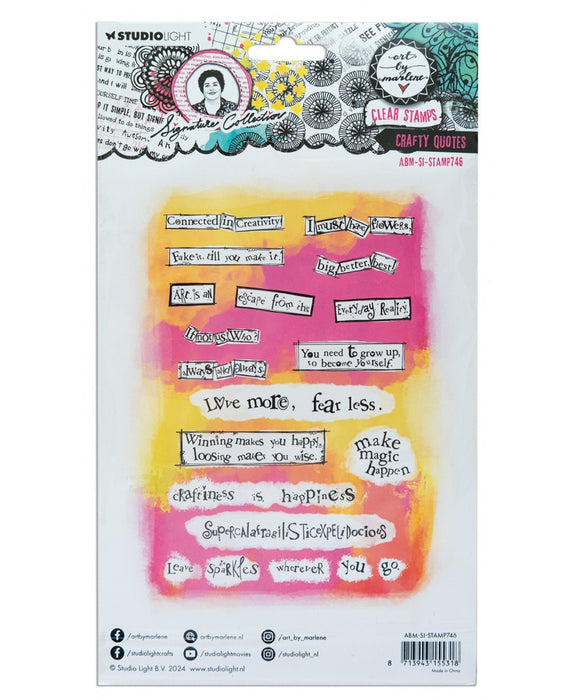 STUDIOLIGHT
Signature Collection
art
by
marlene
CLEAR STAMPS
CRAFTY QUOTES
ABM-SI-STAMP746
Connected in Creativity
I must have flowers,
Fake it till you make it.
big, better, best!
ART is an
escape from the
Everyday Reality.
If not us, Who?
You need to grow up,
to become yourself.
always
always
Love more, fear less.
Winning makes you happy,
loosing makes you wise.
make
magic
happen
craftiness is happiness
SupercalafragiliSticexpelidocious
Leave sparkles wherever you go.
/artbymarlene
/artbymarlene.nl
/art_by_marlene
/studiolightcrafts
/studiolightmovies
/studiolight_nl
© Studio Light B.V. 2024 www.studiolight.nl
ABM-SI-STAMP746
8 713943 155318
Made in China